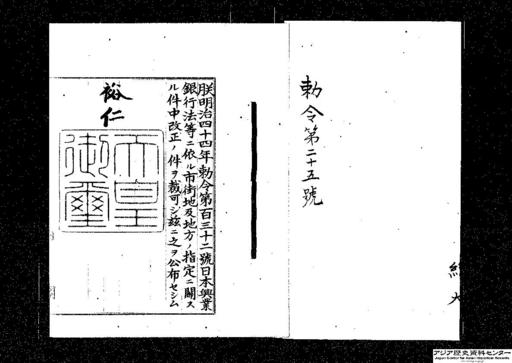 勅令第二十五號
朕明治四十四年勅令第百三十二號日本興業
銀行法等ニ依ル市街地及地方ノ指定ニ關ス
ル件中改正ノ件ヲ裁可シ茲ニ之ヲ公布セシム
裕仁
天皇
御璽
アジア歴史資料センター
Japan Center for Asian Historical Records